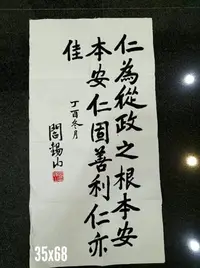 仁為從政之根本安
本安仁固善利仁亦
佳
丁酉冬月
閻錫山
35x68